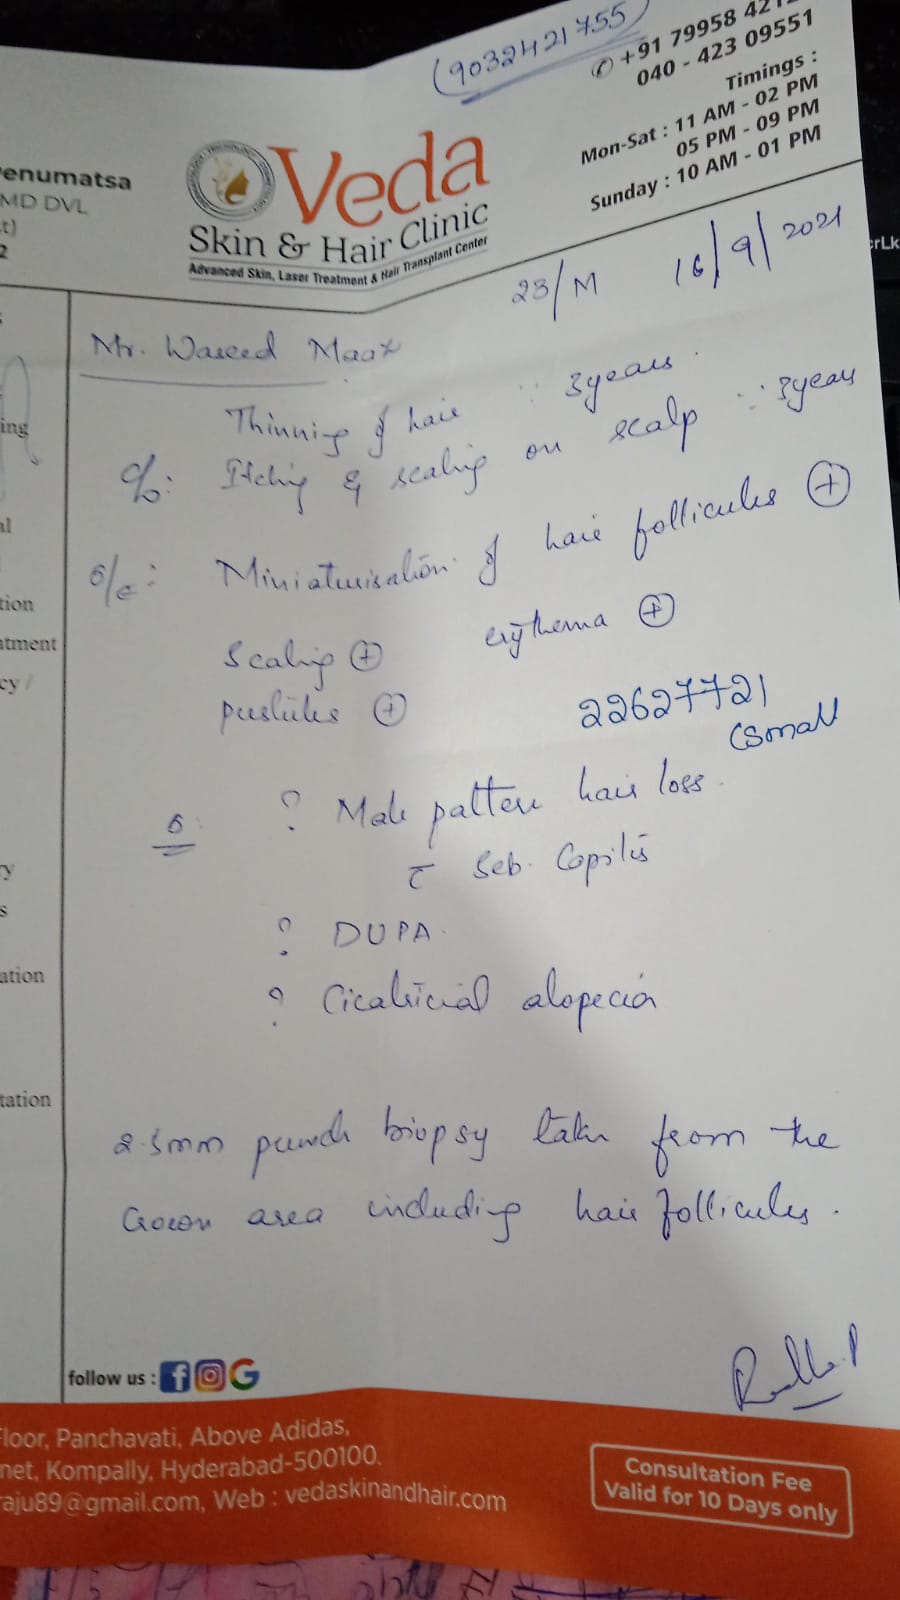 (9032421755)
✆ +91 79958 421
040 - 423 09551
Timings :
Mon-Sat : 11 AM - 02 PM
05 PM - 09 PM
Sunday : 10 AM - 01 PM
enumatsa
MD DVL
t)
2
Veda
Skin & Hair Clinic
Advanced Skin, Laser Treatment & Hair Transplant Center
erLk
23/M 16/9/2021
Mr. Waseed Maaz
Thinning of hair ∵ 3years.
c/o: Itching & scaling on scalp ∵ 3years
o/e: Miniaturisation of hair follicules ⊕
Scaling ⊕ erythema ⊕
pustules ⊕
22627721
(Small
? Male pattern hair loss.
c̄ Seb. Capitis
? DUPA.
? Cicatricial alopecia
2.5mm punch biopsy taken from the
Crown area including hair follicules.
ing
al
tion
atment
cy /
y
s
ation
tation
follow us :
loor, Panchavati, Above Adidas,
net, Kompally, Hyderabad-500100.
raju89@gmail.com, Web : vedaskinandhair.com
Consultation Fee
Valid for 10 Days only